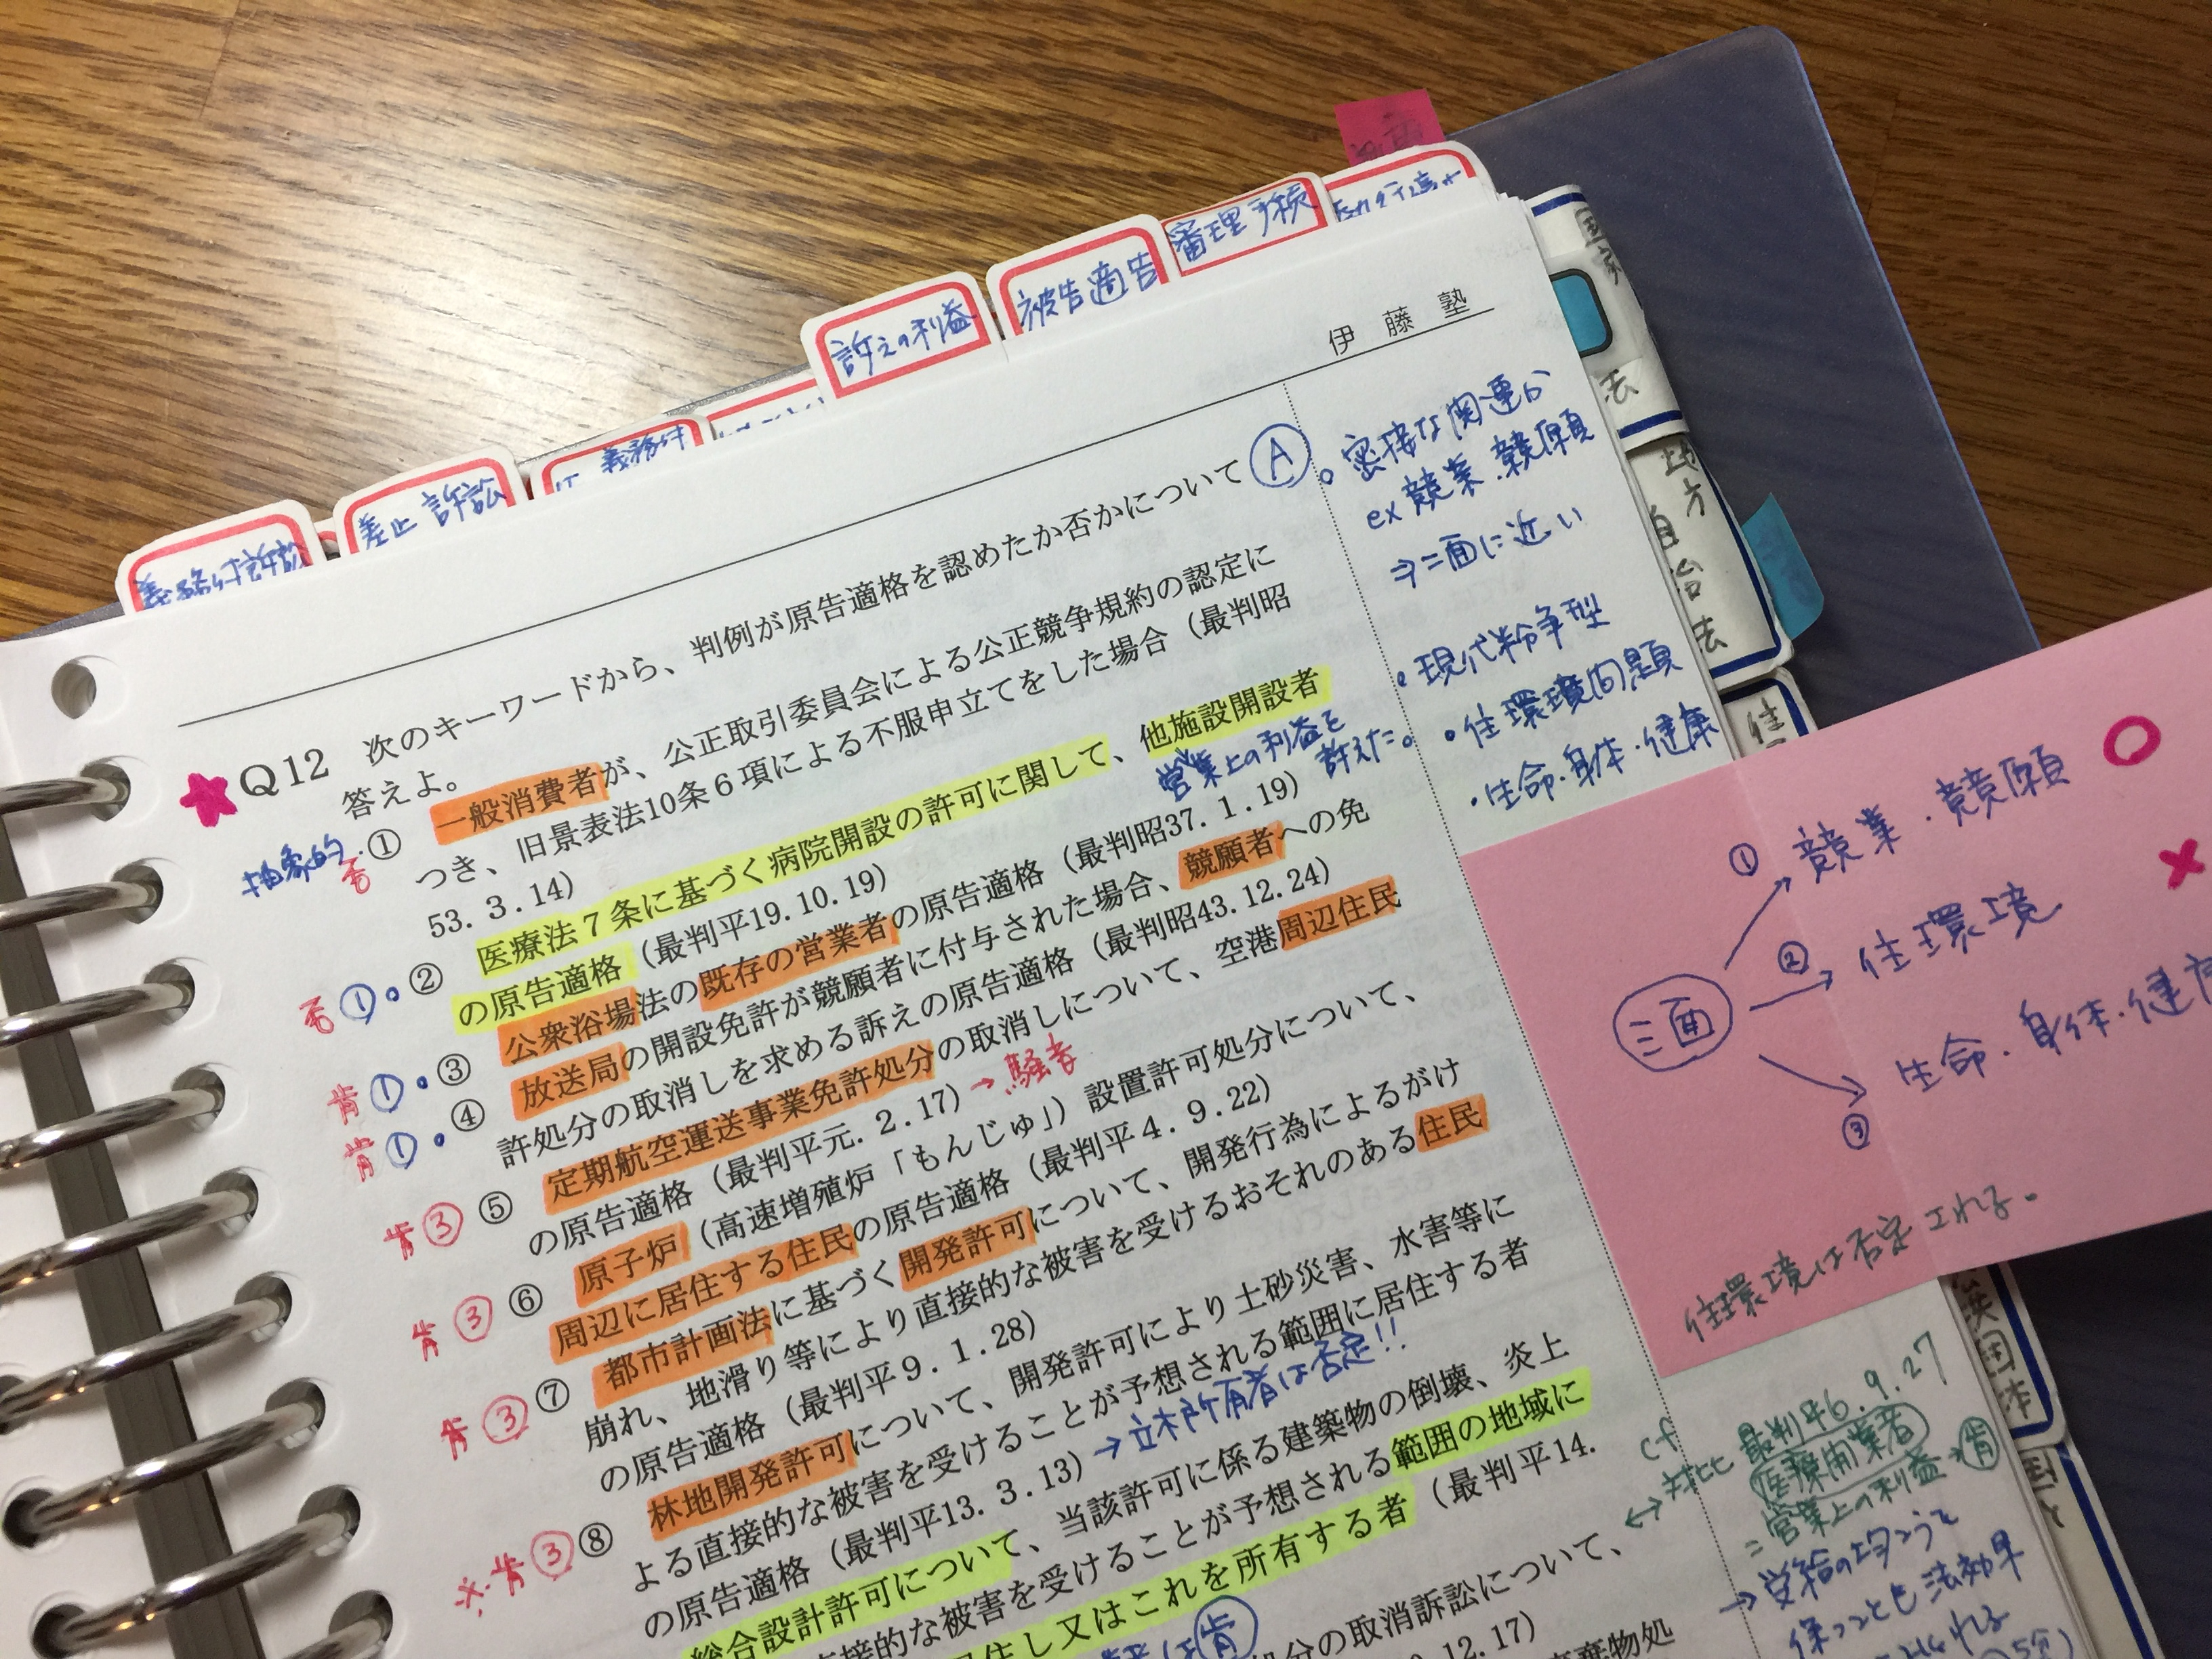 義務付訴訟
差止訴訟
義務付
訴えの利益
被告適告
審理手続
国家
法
地方自治法
伊藤塾
Q12 次のキーワードから、判例が原告適格を認めたか否かについて
答えよ。
A
抽象的
否
① 一般消費者が、公正取引委員会による公正競争規約の認定に
つき、旧景表法10条6項による不服申立てをした場合（最判昭
53. 3. 14）
否 ①
② 医療法7条に基づく病院開設の許可に関して、他施設開設者
の原告適格（最判平19. 10. 19）
営業上の利益を
訴えた。
肯 ①
③ 公衆浴場法の既存の営業者の原告適格（最判昭37. 1. 19）
肯 ①
④ 放送局の開設免許が競願者に付与された場合、競願者への免
許処分の取消しを求める訴えの原告適格（最判昭43. 12. 24）
肯 ③
⑤ 定期航空運送事業免許処分の取消しについて、空港周辺住民
の原告適格（最判平元. 2. 17）→騒音
肯 ③
⑥ 原子炉（高速増殖炉「もんじゅ」）設置許可処分について、
周辺に居住する住民の原告適格（最判平4. 9. 22）
肯 ③
⑦ 都市計画法に基づく開発許可について、開発行為によるがけ
崩れ、地滑り等により直接的な被害を受けるおそれのある住民
の原告適格（最判平9. 1. 28）
※肯 ③
⑧ 林地開発許可について、開発許可により土砂災害、水害等に
よる直接的な被害を受けることが予想される範囲に居住する者
の原告適格（最判平13. 3. 13）→立木所有者は否定!!
総合設計許可について、当該許可に係る建築物の倒壊、炎上
直接的な被害を受けることが予想される範囲の地域に
居住し又はこれを所有する者（最判平14.
肯
処分の取消訴訟について、
12. 17）
廃棄物処
密接な関連か
ex 競業・競願
⇒二面に近い
・現代紛争型
・住環境問題
・生命・身体・健康
三面
① 競業・競願
② 住環境
③ 生命・身体・健
住環境は否定される。
cf
↔ 対比 最判平6. 9. 27
医療開業者
営業上の利益→肯